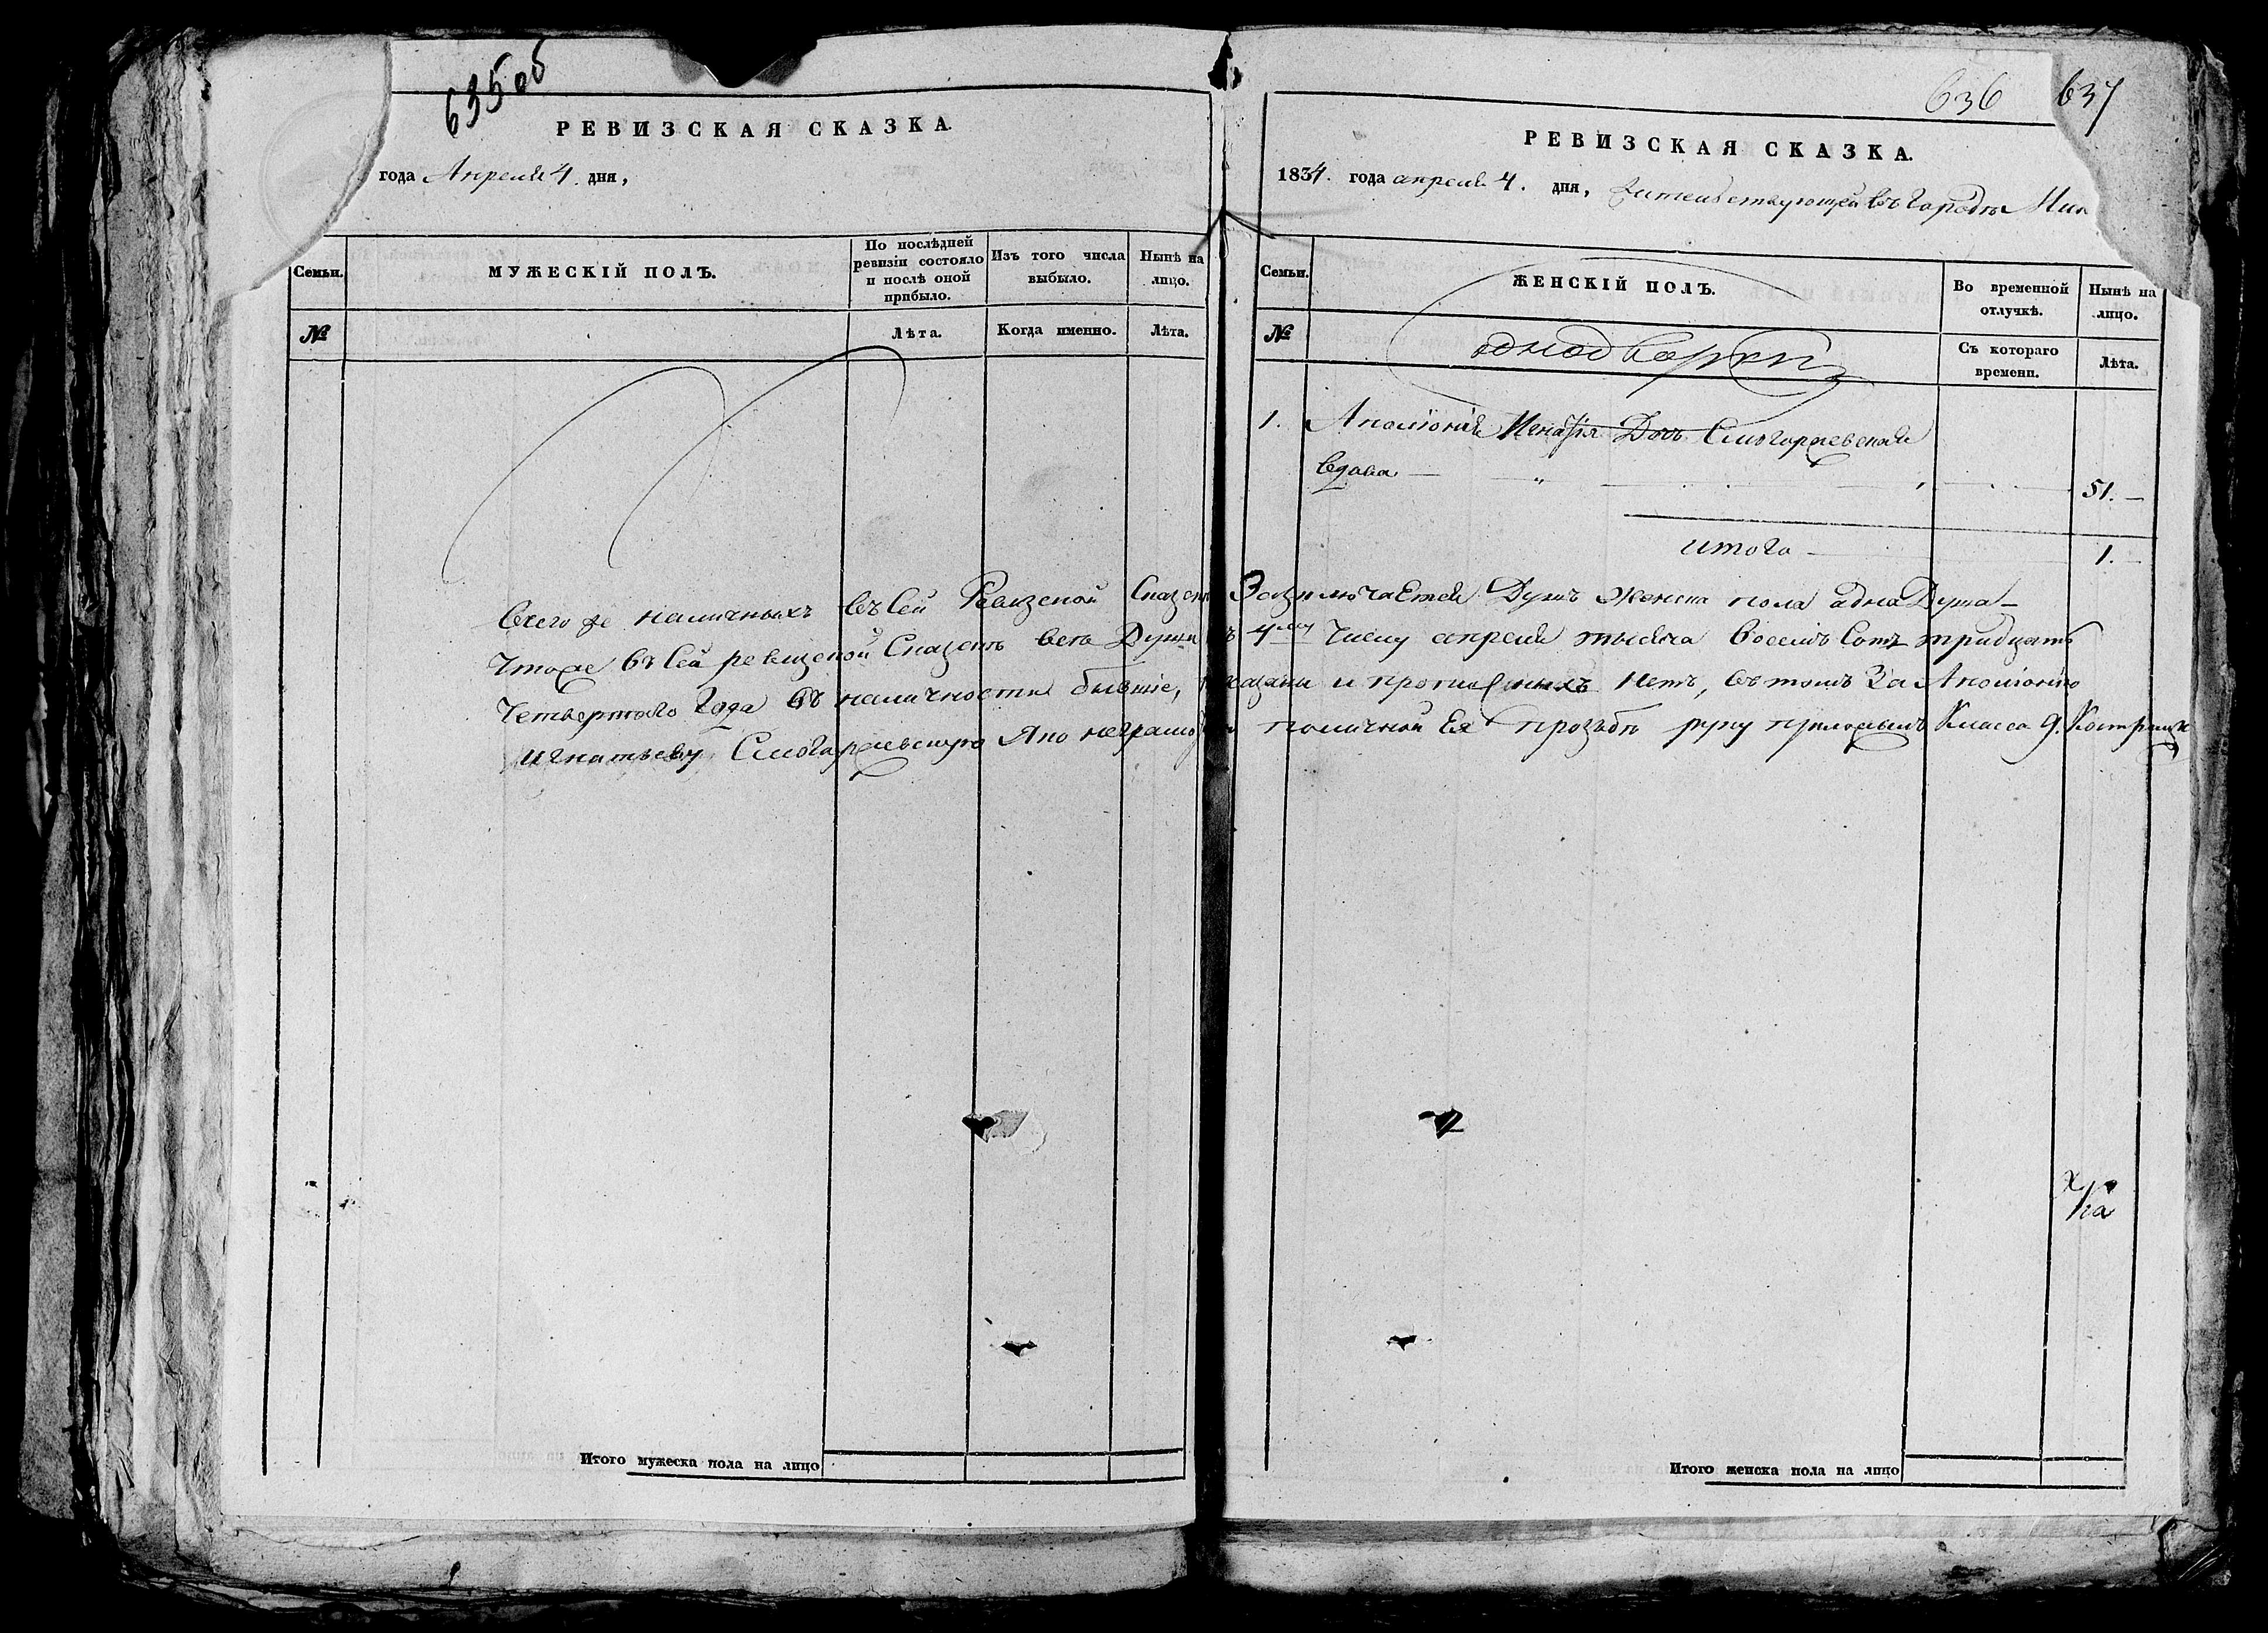 635 об
РЕВИЗСКАЯ СКАЗКА.
года Апреля 4. дня,
Семьи.
МУЖЕСКІЙ ПОЛЪ.
По послѣдней ревизіи состояло и послѣ оной прибыло.
Изъ того числа выбыло.
Нынѣ на лицо.
№
Лѣта.
Когда именно.
Лѣта.
636 637
РЕВИЗСКАЯ СКАЗКА.
1834. года апреля 4. дня, жительствующей въ городѣ Мин
Семьи.
ЖЕНСКІЙ ПОЛЪ.
Во временной отлучкѣ.
Нынѣ на лицо.
№
однодворки
Съ котораго времени.
Лѣта.
1. Аполіонія Игнатія Дочь Смогоржевская
вдова 51.
итого 1.
Всего же наличныхъ въ Сей Ревизской Сказки Заключается Душъ Женска пола адна Душа
Чтоже въ Сей ревизской Сказкѣ все Души къ 4му Числу апреля тысяча восемъ Сотъ тридцать
Четвертаго Года въ наличности бывшіе, показаны и прописныхъ нетъ, въ томъ За Аполіонію
Игнатьеву Смогоржевскую Яко неграмотну поличной Ея прозьбѣ руку приложилъ Класса 9.
Итого мужеска пола на лицо
Итого женска пола на лицо